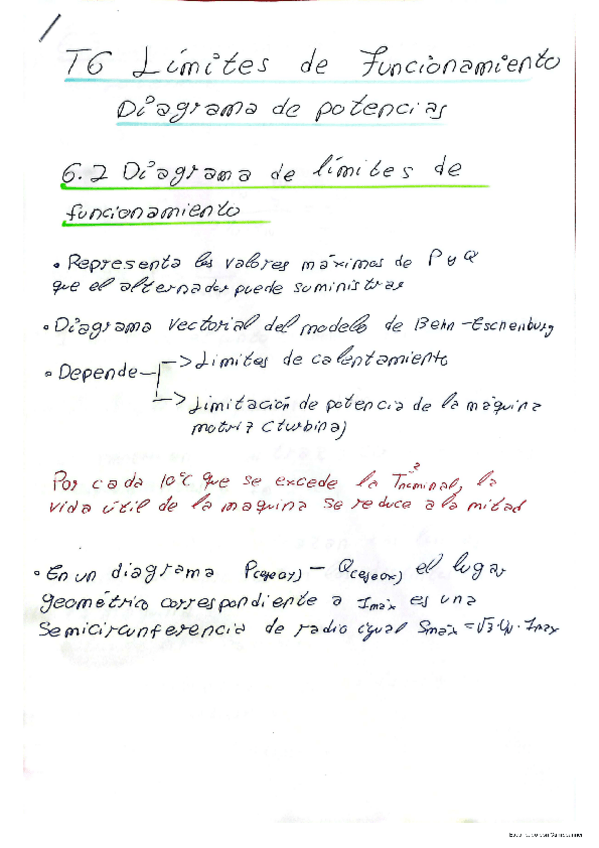 1
T6 Límites de funcionamiento
Diagrama de potencias
6.2 Diagrama de límites de
funcionamiento
• Representa los valores máximos de P y Q
que el alternador puede suministrar
• Diagrama vectorial del modelo de Behn-Eschenburg
• Depende -> Limites de calentamiento
-> Limitación de potencia de la máquina
motriz (turbina)
Por cada 10°C que se excede la Tnominal, la
vida útil de la maquina se reduce a la mitad
• En un diagrama P(eje or) - Q(eje ox) el lugar
geométrico correspondiente a Imáx es una
semicircunferencia de radio igual Smáx = √3·UN·Imax